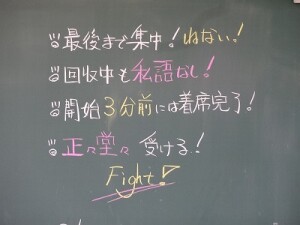 最後まで集中!ねない!
回収中も私語なし!
開始3分前には着席完了!
正々堂々 受ける!
Fight!